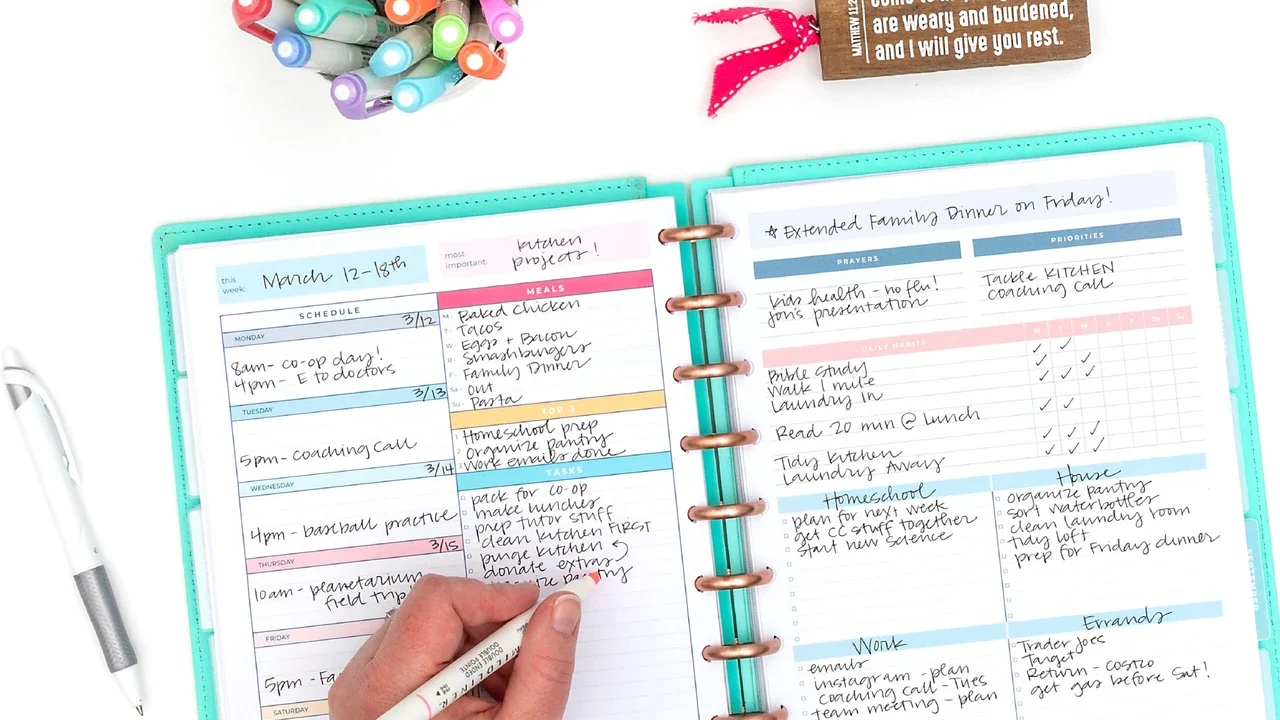 MATTHEW 11:2
are weary and burdened,
and I will give you rest.
this week:
March 12-18th
most important:
kitchen projects!
SCHEDULE
MONDAY
3/12
8am- co-op day!
4pm- E to doctors
TUESDAY
3/13
5pm- coaching call
WEDNESDAY
3/14
4pm - baseball practice
THURSDAY
3/15
10am - planetarium
field trip
FRIDAY
5pm - Fa
SATURDAY
MEALS
M - Baked chicken
T - Tacos
W - Eggs + Bacon
R - Smashburgers
F - Family Dinner
Sa - out
Su - Pasta
TOP 3
1 Homeschool prep
2 Organize pantry
3 Work emails done
TASKS
pack for co-op
make lunches
prep tutor stuff
clean kitchen FIRST
purge kitchen
donate extras
pantry
DOUBLE ENDED
DOUBLE POINTE
Extended Family Dinner on Friday!
PRAYERS
kids health - no flu!
Jon's presentation
PRIORITIES
Tackle KITCHEN
coaching call
DAILY HABITS
M T W R F Sa Su
Bible Study
Walk 1 mile
Laundry In
Read 20 min @ Lunch
Tidy Kitchen
Laundry Away
Homeschool
plan for next week
get CC stuff together
start new science
House
organize pantry
sort waterbottles
clean laundry room
tidy loft
prep for Friday dinner
Work
emails
instagram - plan
coaching call - Tues
team meeting - plan
Errands
Trader Joes
Target
Return - costco
get gas before Sat!